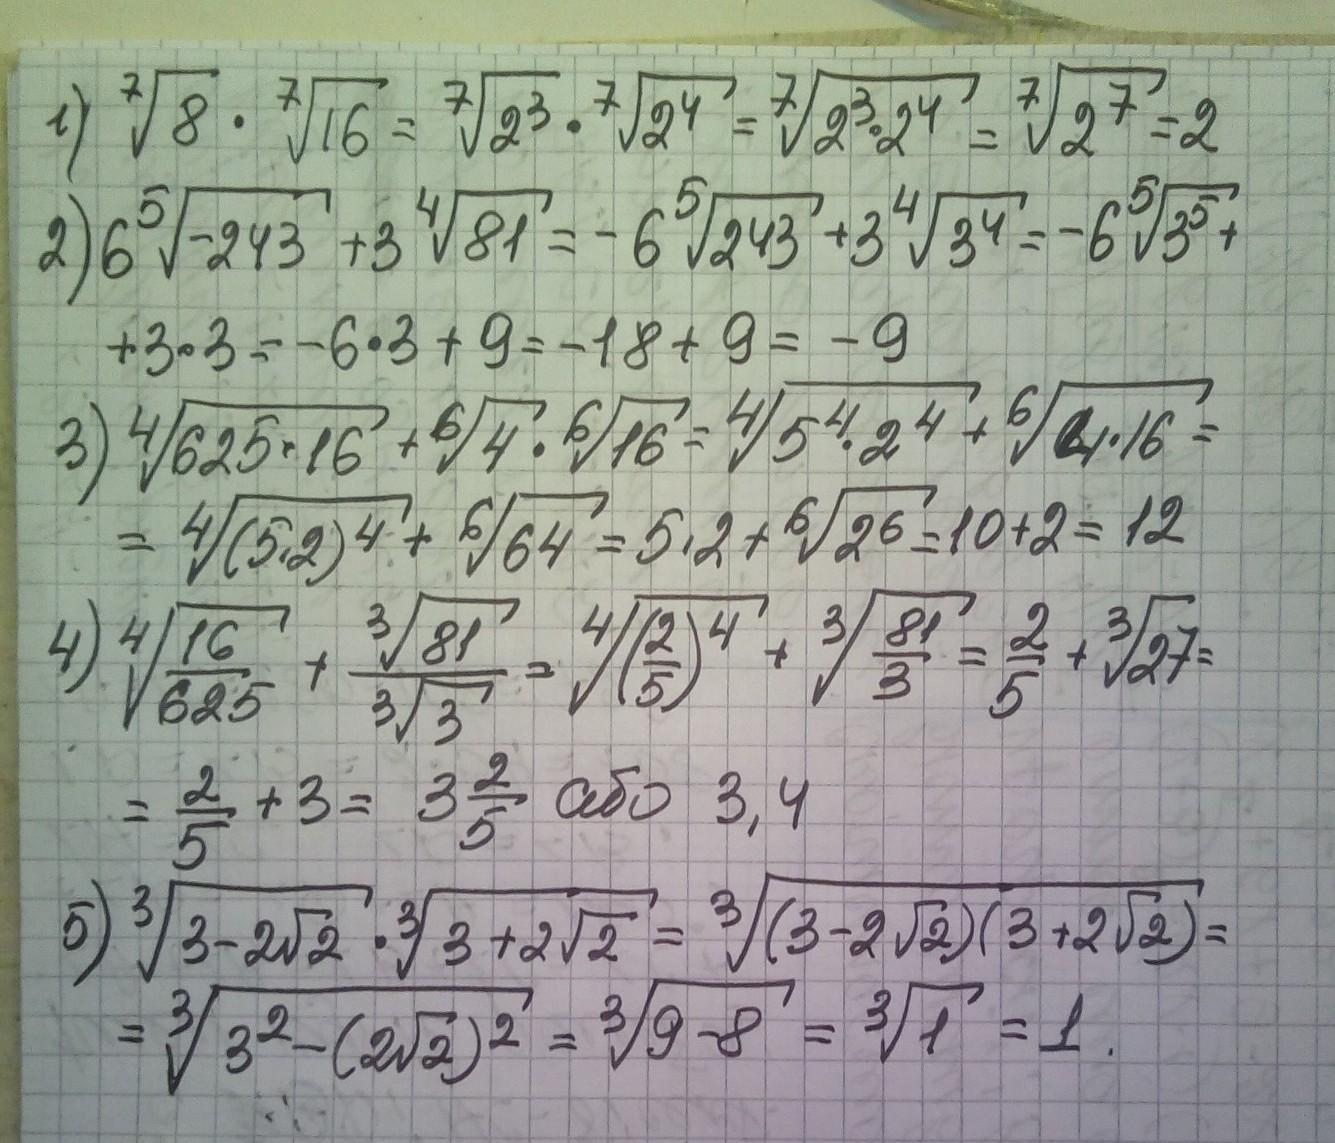 1) ⁷√8 · ⁷√16 = ⁷√2³ · ⁷√2⁴ = ⁷√(2³·2⁴) = ⁷√2⁷ = 2
2) 6 ⁵√(-243) + 3 ⁴√81 = -6 ⁵√243 + 3 ⁴√3⁴ = -6 ⁵√3⁵ +
+3·3 = -6·3 + 9 = -18 + 9 = -9
3) ⁴√(625·16) + ⁶√4 · ⁶√16 = ⁴√(5⁴·2⁴) + ⁶√(4·16) =
= ⁴√((5·2)⁴) + ⁶√64 = 5·2 + ⁶√2⁶ = 10 + 2 = 12
4) ⁴√(16/625) + ³√81/³√3 = ⁴√((2/5)⁴) + ³√(81/3) = 2/5 + ³√27 =
= 2/5 + 3 = 3 2/5 або 3,4
5) ³√(3-2√2) · ³√(3+2√2) = ³√((3-2√2)(3+2√2)) =
= ³√(3²-(2√2)²) = ³√(9-8) = ³√1 = 1.